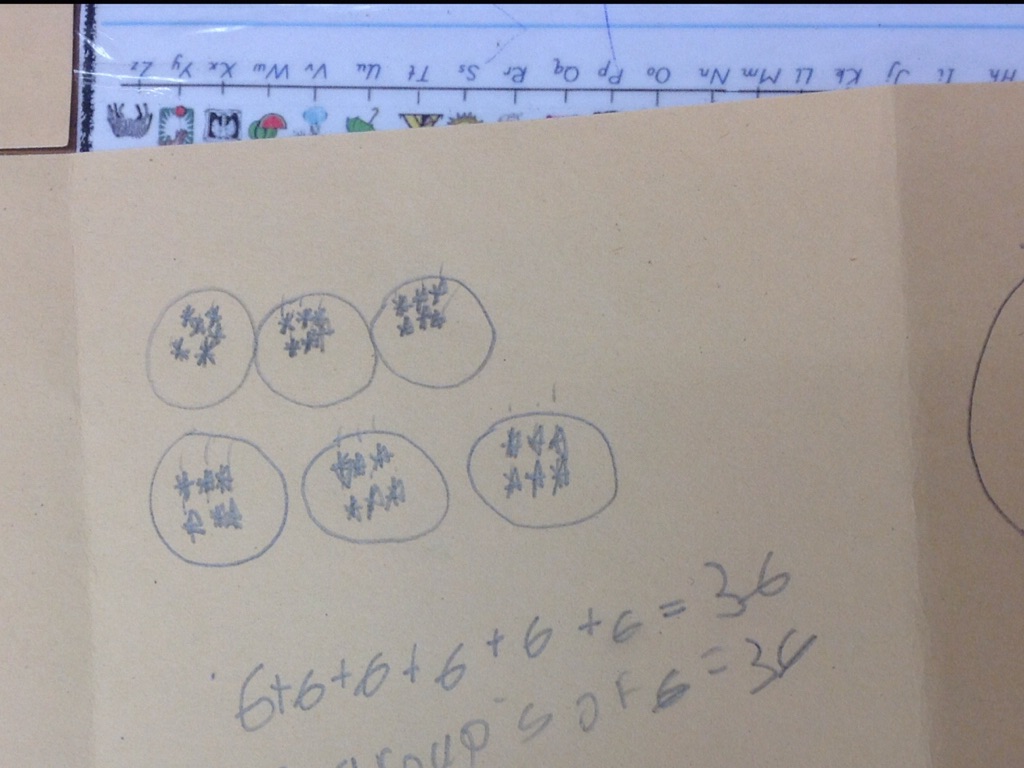 Hh Ii Jj Kk Ll Mm Nn Oo Pp Qq Rr Ss Tt Uu Vv Ww Xx Yy Zz
6+6+6+6+6+6=36
groups of 6=36